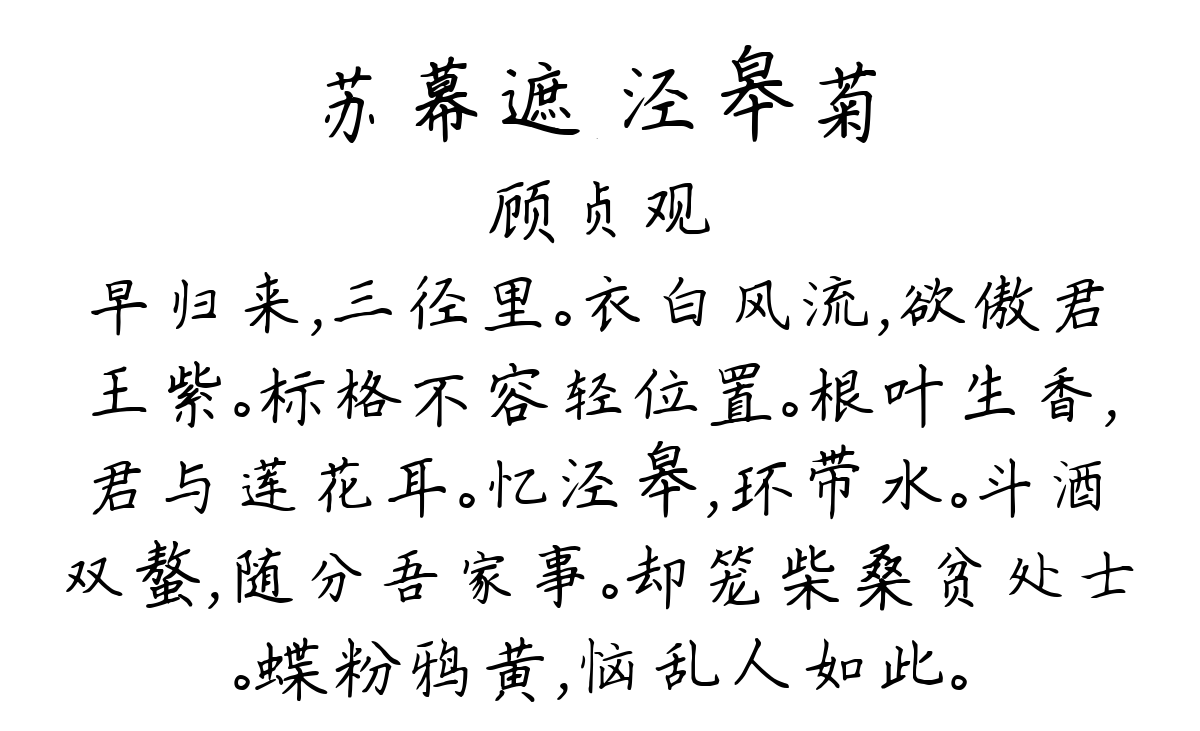 苏幕遮 泾皋菊
顾贞观
早归来,三径里。衣白风流,欲傲君
王紫。标格不容轻位置。根叶生香,
君与莲花耳。忆泾皋,环带水。斗酒
双螯,随分吾家事。却笼柴桑贫处士
。蝶粉鸦黄,恼乱人如此。